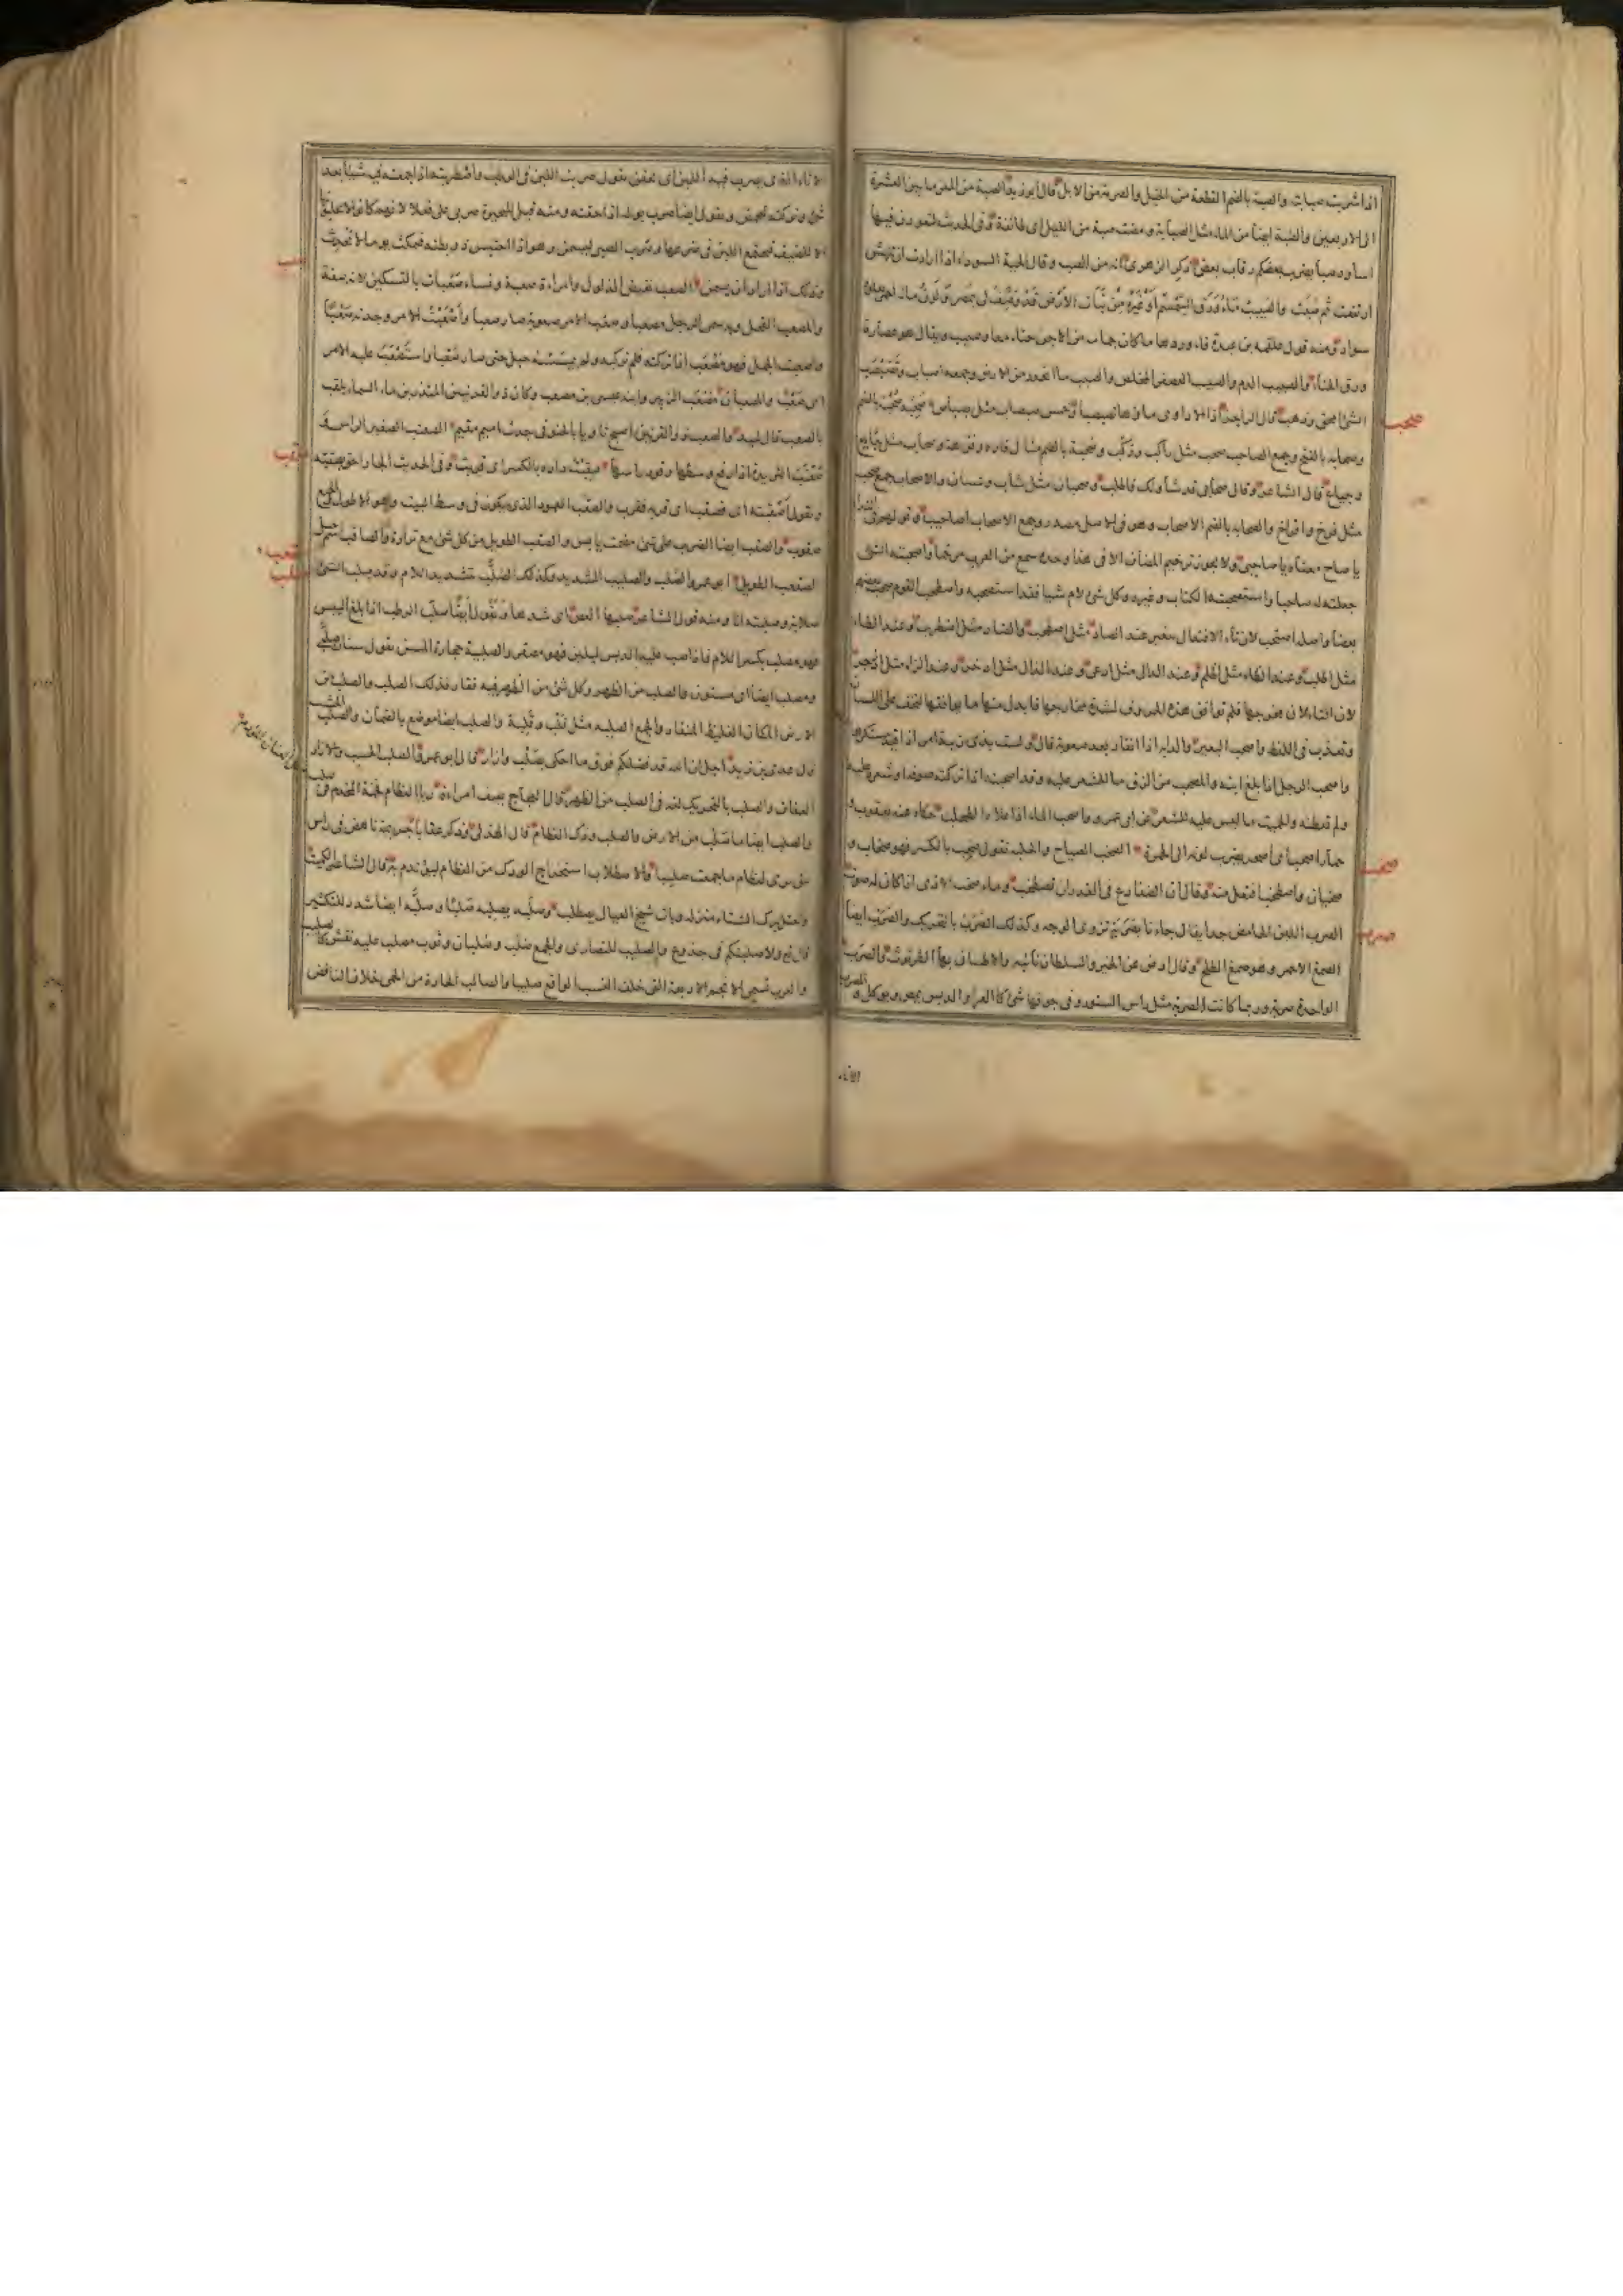 اذا شربت صبابته والصبة بالضم القطعة من الخيل والصرمة من الابل قال ابو زيد الصبة من المعز ما بين العشرة
الى الاربعين والصبة ايضا من الماء مثل الصبابة ومضت صبة من الليل اى طائفة وفى الحديث لتعودن فيها
اساود صبا يضرب بعضكم رقاب بعض ذكر الزهرى انه من الصب وقال الحية السوداء اذا ارادت ان تنهش
ارتفعت ثم صبت والصبيب ماء ورق السمسم او غيره من نبات الارض قد وصف لى بمصر ولون مائه احمر يعلوه
سواد ومنه قول علقمة بن عبدة فاوردها ماء كان جمامه من الاجن حناء معا وصبيب ويقال هو عصارة
ورق الحناء والصبيب الدم والصبيب العصفر المخلص والصبب ما انحدر من الارض وجمعه اصباب وتصبصب
الشئ امحق وذهب قال الراجز اذا الاداوى ماؤها تصبصبا وخمس صبصاب مثل بصباص صحبه صحبة بالضم
وصحابة بالفتح وجمع الصاحب صحب مثل راكب وركب وصحبة بالضم مثال فاره وفرهة وصحاب مثل جايع
وجياع قال الشاعر وقال صحابى قد شأونك فاطلب وصحبان مثل شاب وشبان والاصحاب جمع صحب
مثل فرخ وافراخ والصحابة بالفتح الاصحاب وهو فى الاصل مصدر وجمع الاصحاب اصاحيب وقولهم فى النداء
يا صاح معناه يا صاحبى ولا يجوز ترخيم المضاف الا فى هذا وحده سمع من العرب مرخما واصحبته الشئ
جعلته له صاحبا واستصحبته الكتاب وغيره وكل شئ لاءم شيا فقد استصحبه واصطحب القوم صحب بعضهم
بعضا واصله اصتحب لان تاء الافتعال تتغير عند الصاد مثل اصطحب والضاد مثل اضطرب وعند الطاء
مثل اطلب وعند الظاء مثل اظلم وعند الدال مثل ادعى وعند الذال مثل اذخر وعند الزاء مثل ازدجر
لان التاء لان مخرجها فلم توافق هذه الحروف لشدة مخارجها فابدل منها ما يوافقها لتخف على اللسان
وتعذب فى اللفظ واصحب البعير والدابة اذا انقاد بعد صعوبة قال ولست بذى رثية امر اذا قيد مستكرها
واصحب الرجل اذا بلغ ابنه والمصحب من الزق ما الشعر عليه وقد اصحبته اذا تركت صوفه او شعره عليه
ولم تعطنه والحميت ما ليس عليه الشعر عن ابى عمرو واصحب الماء اذا علاه الطحلب حكاه عنه يعقوب و
حمار اصحب اى اصحر يضرب لونه الى الحمرة الصخب الصياح والجلبة تقول صخب بالكسر فهو صخاب و
صخبان واصطخب افتعل منه وقال ان الضفادع فى الغدران تصطخب وماء صخب الاذى اذا كان له صوت
الصرب اللبن الحامض جدا يقال جاءنا بصربة تزوى الوجه وكذلك الصرب بالتحريك والصرب ايضا
الصمغ الاحمر وهو صمغ الطلح وقال ارض عن الخير والسلطان نائية والاطيبان بها الطرثوث والصرب
الواحدة صربة وربما كانت الصربة مثل راس السنور وفى جوفها شئ كالغراء والدبس يمص ويوكل و المصرب
صحب
صخب
صرب
الاناء
الاناء الذى يصرب فيه اللبن اى يحقن تقول صربت اللبن فى الوطب واصطربته اذا جمعته فيه شيئا بعد
شئ وتركته ليحمض وتقول ايضا صرب بوله اذا حقنه ومنه قيل للبحيرة صربى على فعلى لانهم كانوا لا يحلبونها
الا للضيف فيجتمع اللبن فى ضرعها وصرب الصبى ليسمن وهو اذا احتبس ذو بطنه فيمكث يوما لا يحدث
وذلك اذا اراد ان يسمن الصعب نقيض الذلول وامراة صعبة ونساء صعبات بالتسكين لانه صفة
والمصعب الفحل وبه سمى الرجل مصعبا وصعب الامر صعوبة صار صعبا واصعبت الامر وجدته صعبا
واصعبت الجمل فهو مصعب اذا تركته فلم تركبه ولم يمسسه حبل حتى صار صعبا واستصعب عليه الامر
اى صعب والمصعبان مصعب بن الزبير وابنه عيسى بن مصعب وكان ذو القرنين المنذر بن ماء السماء يلقب
بالصعب قال لبيد والصعب ذو القرنين اصبح ثاويا بالحنو فى جدث اميم مقيم الصعنب الصغير الراس
صعنبت الثريدة اذا رفع وسطها وقور راسها صقبت داره بالكسر اى قربت وفى الحديث الجار احق بصقبه
وتقول اصقبته اى فصقب اى قربه فقرب والصقب العمود الذى يكون فى وسط البيت وهو الاطول والجمع
صقوب والصقب ايضا الضرب على شئ مصمت يابس والصقب الطويل من كل شئ مع ترارة والصاقب اسم جبل
الصقعب الطويل ابو عمرو الصلب والصليب الشديد وكذلك الصلب بتشديد اللام وقد صلب الشئ
صلابة وصلبته انا ومنه قول الشاعر صليب العصا اى شدها وتقول ايضا صلب الرطب اذا بلغ اليبس
فهو مصلب بكسر اللام فاذا صب عليه الدبس ليلين فهو مصقر والصلبية حجارة المسن تقول سنان صلبى
ومصلب ايضا اى مسنون والصلب من الظهر وكل شئ من الظهر فيه فقار فذلك الصلب والصلب من
الارض المكان الغليظ المنقاد والجمع الصلبة مثل قلب وقلبة والصلب ايضا موضع بالصمان والصلب
قال عدى بن زيد اجل ان الله قد فضلكم فوق ما احكى بصلب وازار قال ابو عمرو الصلب الحسب والازار
العفاف والصلب بالتحريك لغة فى الصلب من الظهر قال العجاج يصف امراة ريا العظام فخمة المخدم فى صلب
والصلب ايضا ما صلب من الارض والصلب ودك العظام قال الهذلى وذكر عقابا جريمة ناهض فى راس
نيق ترى لعظام ما جمعت صليبا والاصطلاب استخراج الودك من العظام ليؤتدم به قال الشاعر الكميت
واحتل برك الشتاء منزله وبات شيخ العيال يصطلب وصلبه يصلبه صلبا وصلبه ايضا شدد للتكثير
قال تع ولاصلبنكم فى جذوع والصليب للنصارى والجمع صلب وصلبان وثوب مصلب عليه نقش كالصليب
والعرب تسمى الانجم الاربعة التى خلف النسر الواقع صليبا والصالب الحارة من الحمى خلاف النافض
صعب
صقب
صقعب
صلب